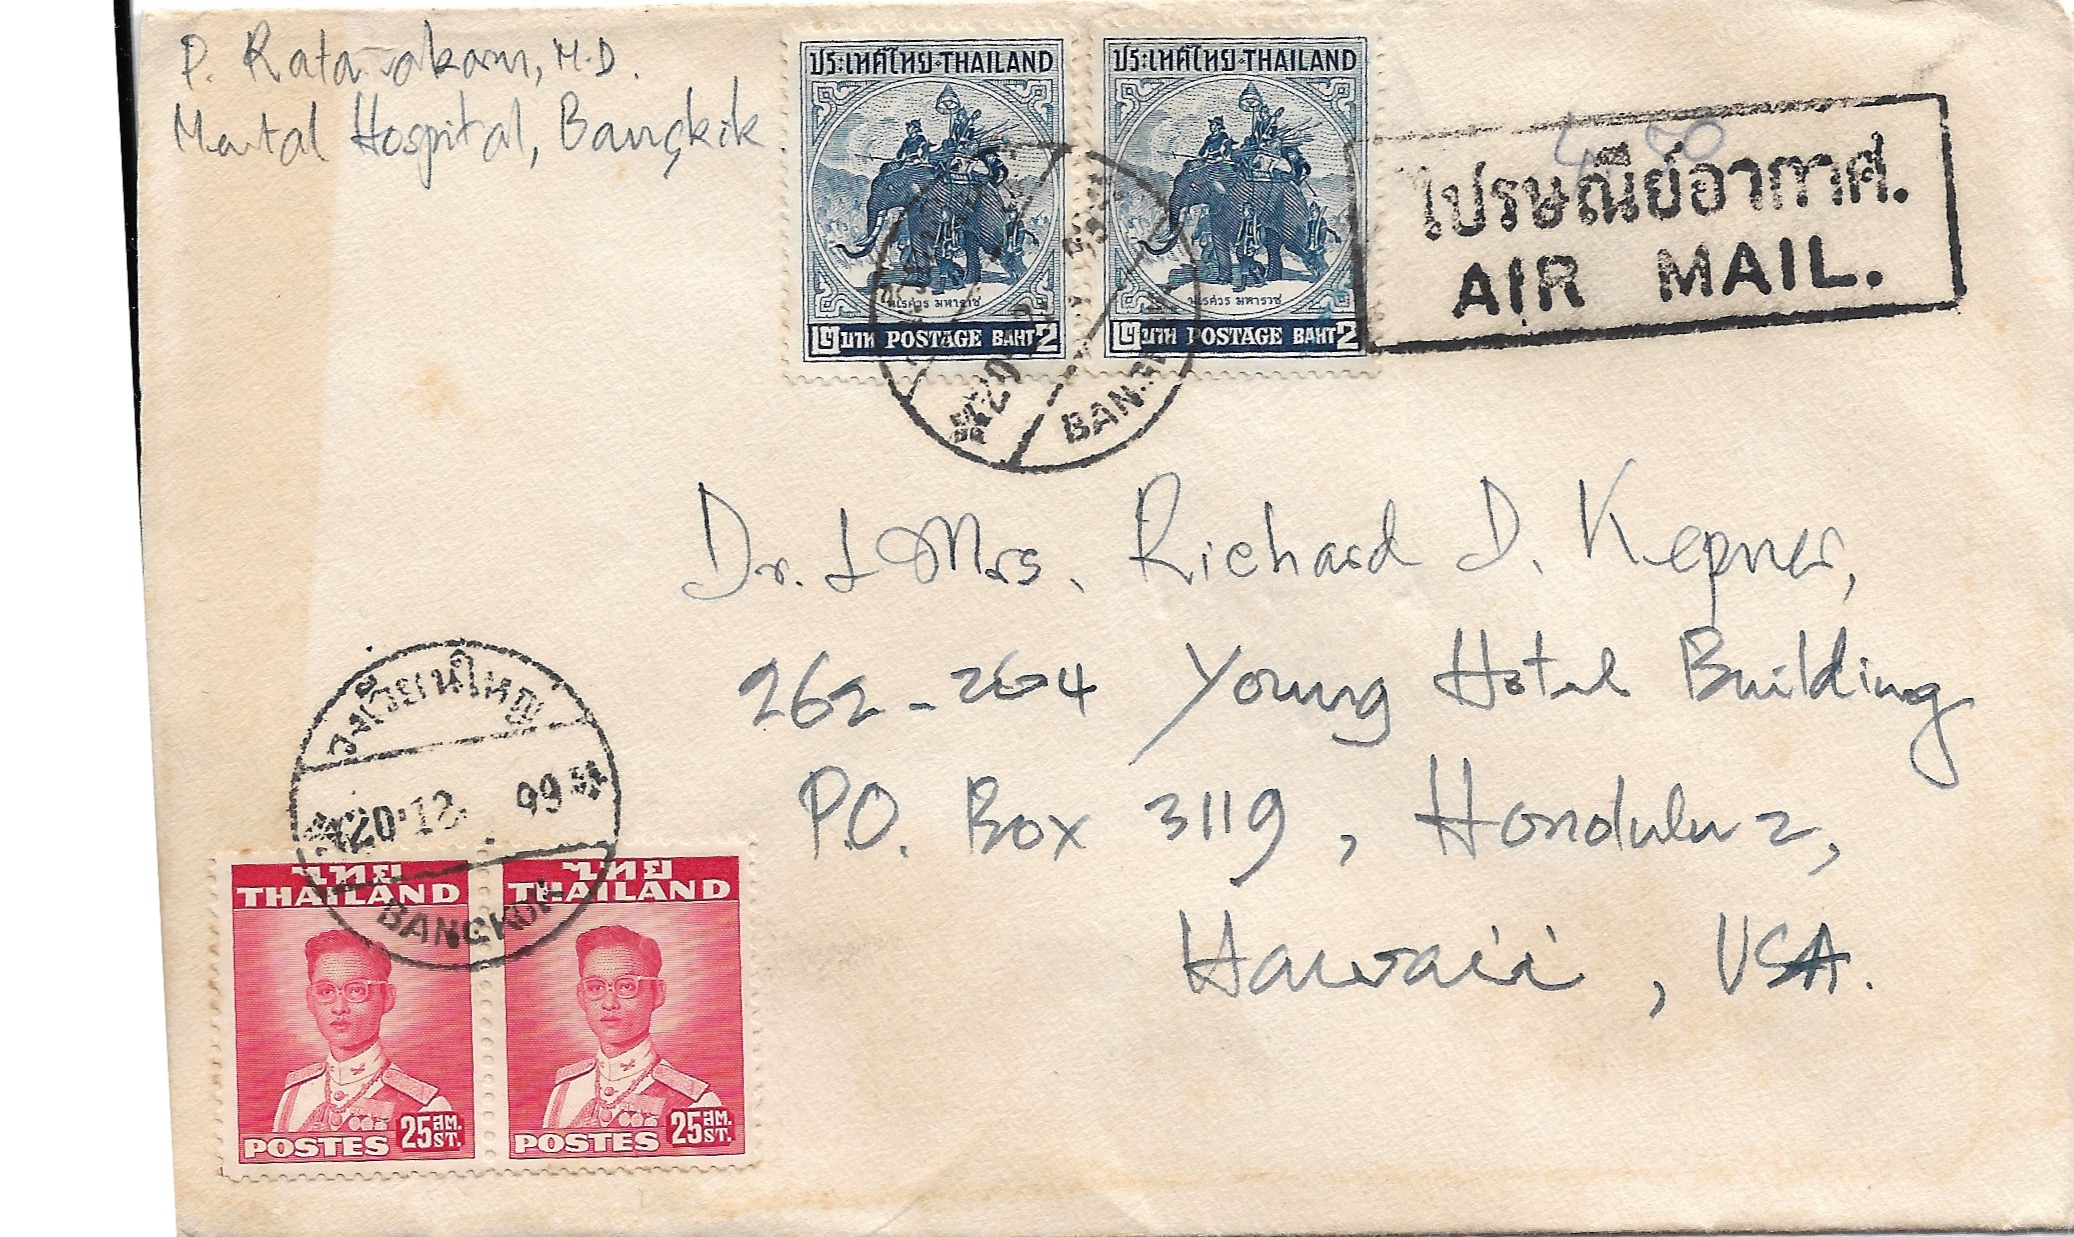 P. Ratanakorn, M.D.
Mental Hospital, Bangkok
ประเทศไทย·THAILAND
นเรศวร มหาราช
๒ บาท POSTAGE BAHT 2
ประเทศไทย·THAILAND
นเรศวร มหาราช
๒ บาท POSTAGE BAHT 2
4.50
ไปรษณีย์อากาศ.
AIR MAIL.
BANGKOK
Dr. & Mrs. Richard D. Kepner,
262-264 Young Hotel Building
P.O. Box 3119, Honolulu 2,
Hawaii, USA.
วงเวียนใหญ่
20.12. 99
BANGKOK
ไทย
THAILAND
POSTES 25 สต. ST.
ไทย
THAILAND
POSTES 25 สต. ST.